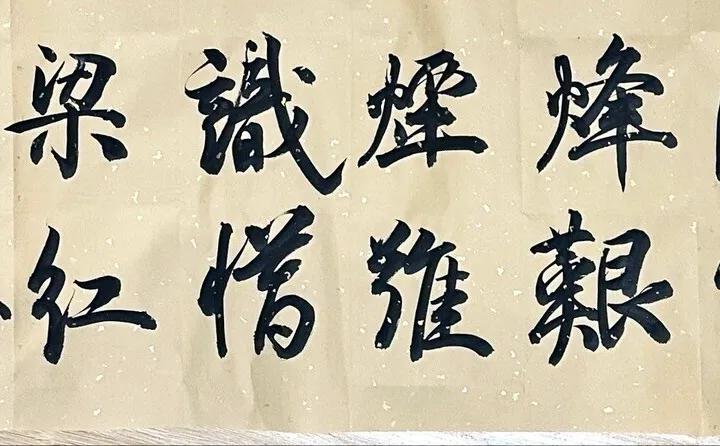 烽煙識梁
艱難惜紅